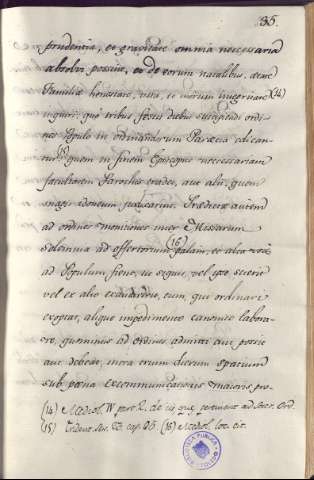 35.
prudentia, et gravitate omnia necessaria
absolvi possint, et de eorum natalibus, ætate
Familiæ honestate, vita, et morum integritate (14)
inquiri: quo tribus festis diebus suscipiendi ordi-
nes Populo in ordinandorum Paræcia edican-
tur (15) quem in finem Episcopus necessariam
facultatem Parochis tradet, aut alii, quem
magis idoneum judicarint. Prædictæ autem
ad ordines monitiones inter Missarum
solemnia ad offertorium (16) palam, et alta voce
ad Populum fient, ut siquis, vel ipse scierit
vel ex alio exaudierit, eum, qui ordinari
exoptat, aliquo impedimento canonico labora-
re, quominus ad ordines admitti aut possit
aut debeat, intra eorum dierum spatium
sub pœna excommunicationis maioris, pro-
(14) Mediol. IV part. 2. de iis quæ pertinent ad Sacr. Ord.
(15) Trident. Ses. 23 cap. 05. (16) Mediol. loc. cit.
BIBLIOTECA PUBLICA